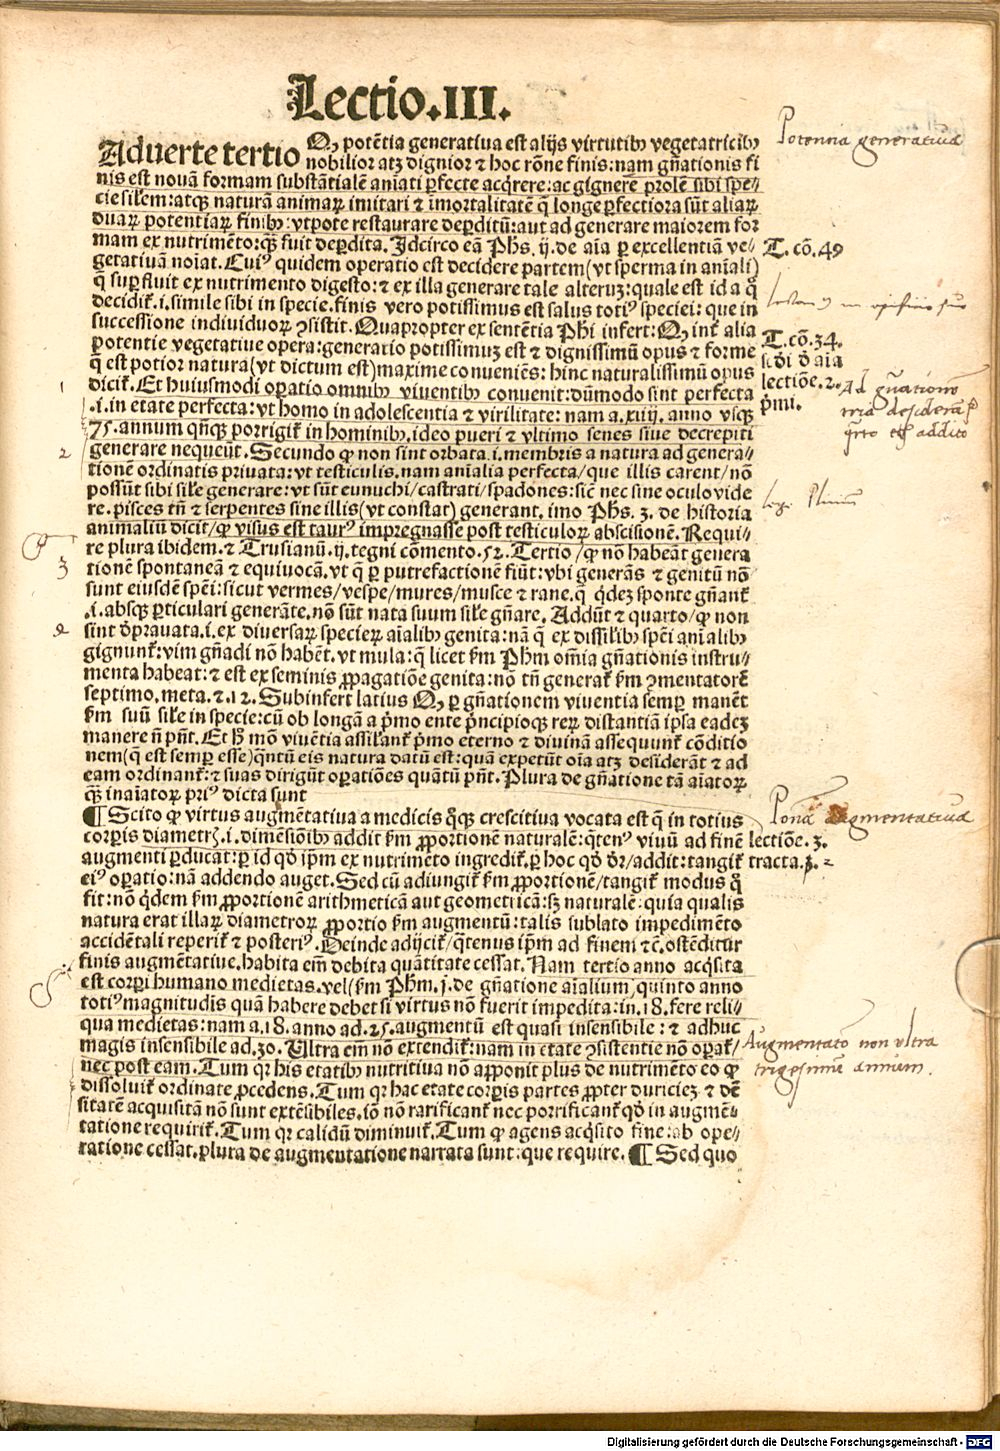 Lectio.III.
Aduerte tertio Q, potētia generatiua est alijs virtutibꝫ vegetatricibꝫ
nobilior atqꝫ dignior ⁊ hoc rōne finis: nam gn̄ationis fi
nis est nouā formam substātialē aniati ꝑfecte acq̄rere: ac gignere prolē sibi spe⸗
cie sil'em: atqꝫ naturā animaꝝ imitari ⁊ īmortalitatē q̄ longe ꝑfectiora sūt aliaꝝ
duaꝝ potentiaꝝ finibꝫ: vtpote restaurare deꝑditū: aut ad generare maiorem for
mam ex nutrimēto: qꝫ fuit deꝑdita. Idcirco eā Ph̄s. ij. de aīa ꝑ excellentiā ve⸗
getatiuā noīat. Cuiꝰ quidem operatio est decidere partem (vt sperma in aniali)
q̄ suꝑfluit ex nutrimento digesto: ⁊ ex illa generare tale alteruꝫ: quale est id a q̄
decidit̄. i. simile sibi in specie. finis vero potissimus est salus totiꝰ speciei: que in
successione indiuiduoꝝ ↄsistit. Quapropter ex sentētia Ph̄i infert: Q, int̄ alia
potentie vegetatiue opera: generatio potissimuꝫ est ⁊ dignissimū opus ⁊ forme
q̄ est potior natura (vt dictum est) maxime conueniēs: hinc naturalissimū opus
dicit̄. Et huiusmodi oꝑatio omnibꝫ viuentibꝫ conuenit: dūmodo sint perfecta
.i. in etate perfecta: vt homo in adolescentia ⁊ virilitate: nam a. xiiij. anno vsqꝫ
75. annum qn̄qꝫ porrigit̄ in hominibꝫ. ideo pueri ⁊ vltimo senes siue decrepiti
generare nequeūt. Secundo ꝙ non sint orbata. i. membris a natura ad genera⸗
tionē ordinatis priuata: vt testiculis. nam anīalia perfecta/ que illis carent/ nō
possūt sibi sil'e generare: vt sūt eunuchi/ castrati/ spadones: sic̄ nec sine oculo vide
re. pisces tn̄ ⁊ serpentes sine illis (vt constat) generant. imo Ph̄s. 3. de historia
animaliū dicit/ ꝙ visus est taurꝰ impregnasse post testiculoꝝ abscisionē. Requi⸗
re plura ibidem. ⁊ Trusianū. ij. tegni cōmento. 52. Tertio/ ꝙ nō habeāt genera
tionē spontaneā ⁊ equiuocā. vt q̄ ꝑ putrefactionē fiūt: vbi generās ⁊ genitū nō
sunt eiusdē spēi: sicut vermes/ vespe/ mures/ musce ⁊ rane. q̄ q̇deꝫ sponte gn̄ant̄
.i. absqꝫ ꝑticulari generāte. nō sūt nata suum sil'e gn̄are. Addūt ⁊ quarto/ ꝙ non
sint dꝑrauata. i. ex diuersaꝝ specieꝝ aīalibꝫ genita: nā q̄ ex dissil'ibꝫ spēi anīalibꝫ
gignunt̄: vim gn̄adi nō habēt. vt mula: q̄ licet ẜm Ph̄m om̄ia gn̄ationis instru⸗
menta habeat: ⁊ est ex seminis ꝓpagatiōe genita: nō tn̄ generat̄ ẜm ↄmentatorē
septimo. meta. ⁊. 12. Subinfert latius Q, ꝑ gn̄ationem viuentia semꝑ manēt
ẜm suū sil'e in specie: cū ob longā a p̄mo ente p̄ncipioqꝫ reꝝ distantiā ipsa eadeꝫ
manere n̄ pn̄t. Et h̄ mō viuētia assil'ant̄ p̄mo eterno ⁊ diuinā assequunt̄ cōditio
nem (q̄ est semꝑ esse) q̄ntū eis natura datū est: quā expetūt oīa atqꝫ desiderāt ⁊ ad
eam ordinant̄: ⁊ suas dirigūt oꝑatiōes quātū pn̄t. Plura de gn̄atione tā aīatoꝝ
qꝫ inaīatoꝝ priꝰ dicta sunt
¶ Scito ꝙ virtus augmētatiua a medicis q̄qꝫ crescitiua vocata est q̄ in totius
corꝑis diametrꝫ. i. dimēsiōibꝫ addit ẜm ꝓportionē naturalē: q̄tenꝰ viuū ad finē
augmenti ꝑducat: ꝑ id qd̄ ip̄m ex nutrimēto ingredit̄. ꝑ hoc qd̄ dr̄/ addit: tangit̄
eiꝰ oꝑatio: nā addendo auget. Sed cū adiungit̄ ẜm ꝓportionē/ tangit̄ modus q̄
fit: nō q̇dem ẜm ꝓportionē arithmeticā aut geometricā: sꝫ naturalē: quia qualis
natura erat illaꝝ diametroꝝ ꝓportio ẜm augmentū: talis sublato impedimēto
accidētali reperit̄ ⁊ posteriꝰ. Deinde adijcit̄/ q̄tenus ip̄m ad finem ⁊c̄. ostēditur
finis augmētatiue. habita em̄ debita quātitate cessat. Nam tertio anno acq̄sita
est corꝑi humano medietas. vel (ẜm Ph̄m. j. de gn̄atione aīalium) quinto anno
totiꝰ magnitudis quā habere debet si virtus nō fuerit impedita: in. 18. fere reli⸗
qua medietas: nam a. 18. anno ad. 25. augmentū est quasi insensibile: ⁊ adhuc
magis insensibile ad. 30. Ultra em̄ nō extendit̄: nam in etate ↄsistentie nō oꝑat̄/
nec post eam. Tum qꝛ his etatibꝫ nutritiua nō apponit plus de nutrimēto eo ꝙ
dissoluit̄ ordinate ꝓcedens. Tum qꝛ hac etate corꝑis partes ꝓpter duricieꝫ ⁊ dē
sitatē acquisitā nō sunt extēsibiles. iō nō rarificant̄ nec porrificant̄ qd̄ in augmē⸗
tatione requirit̄. Tum qꝛ calidū diminuit̄. Tum ꝙ agens acq̄sito fine: ab ope⸗
ratione cessat. plura de augmentatione narrata sunt: que require. ¶ Sed quo
Potentia generatiua
T. cō. 49
T. cō. 34.
scd̄i d̄ aīa
lectiōe. 2.
p̄mi.
Ad gn̄ationē
desiderā
addito
lege Plinium
1
2
3
4
Potētia augmentatiua
lectiōe. 3.
tracta. 3.
Augmentatō non vltra
trigesimum annum.
Digitalisierung gefördert durch die Deutsche Forschungsgemeinschaft - DFG